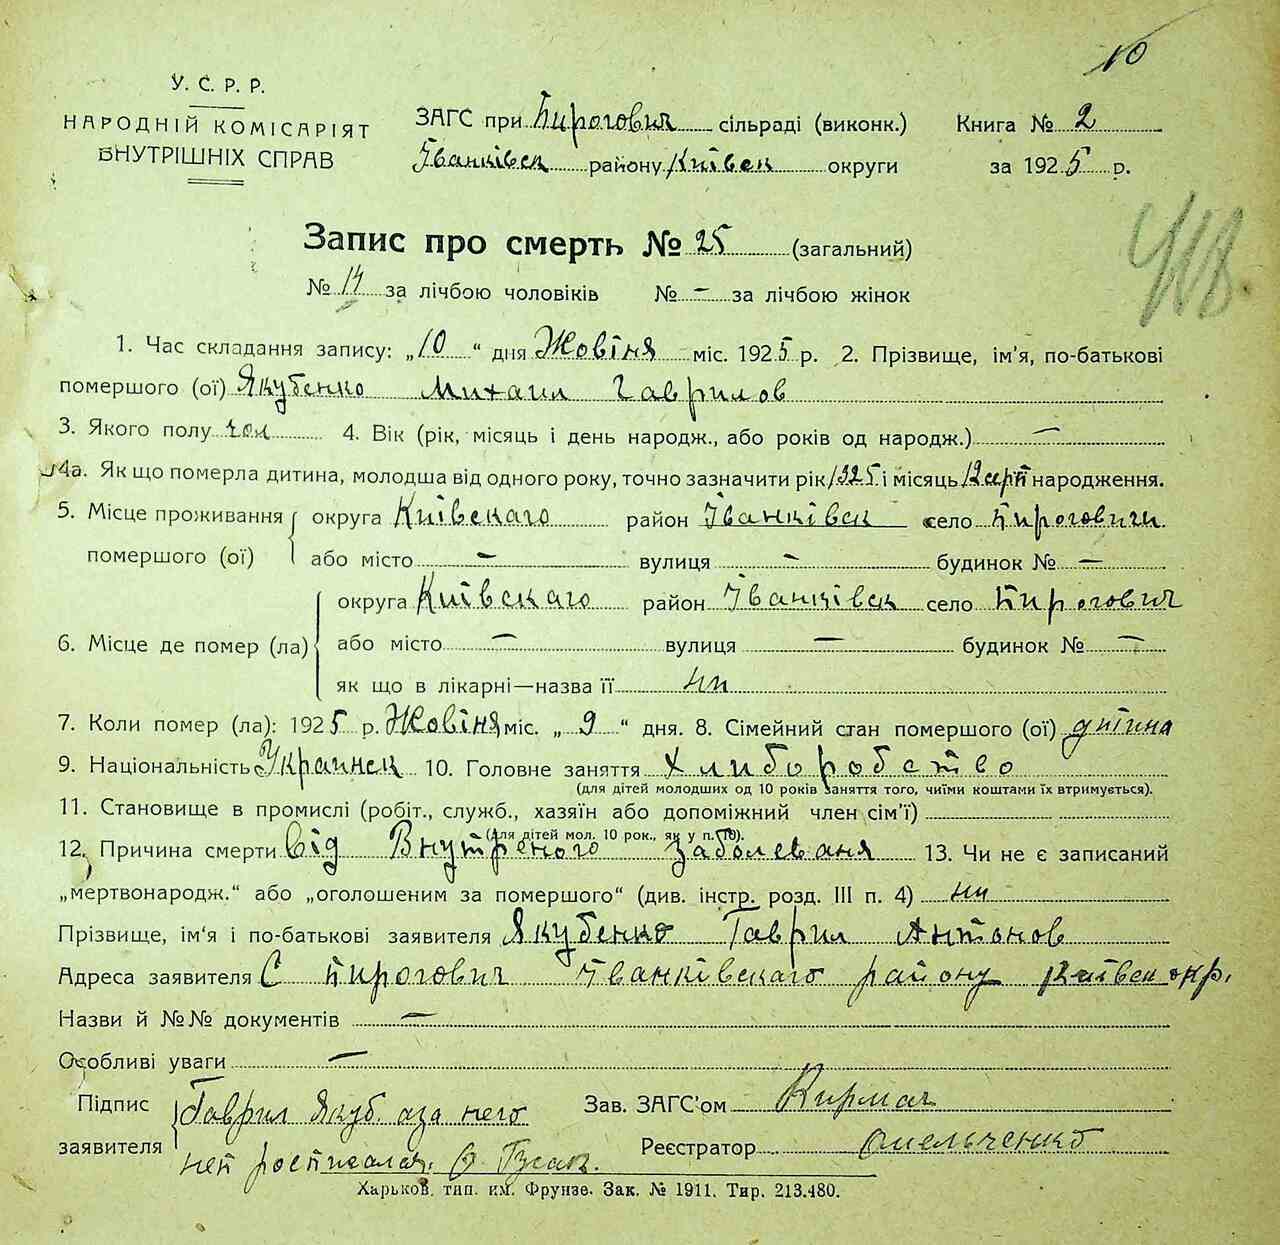 10
У. С. Р. Р.
НАРОДНІЙ КОМІСАРІЯТ
ВНУТРІШНІХ СПРАВ
ЗАГС при Пирогович сільраді (виконк.)
Іванківск району Київск округи
Книга № 2
за 1925 р.
Запис про смерть № 25 (загальний)
№ 14 за лічбою чоловіків № – за лічбою жінок
1. Час складання запису: „10“ дня Жовіня міс. 1925 р. 2. Прізвище, ім’я, по-батькові
помершого (ої) Якубенко Михаил Гаврилов
3. Якого полу чол 4. Вік (рік, місяць і день народж., або років од народж.) —
4а. Як що померла дитина, молодша від одного року, точно зазначити рік 1925 і місяць 12 серп народження.
5. Місце проживання округа Київскаго район Іванківск село Пироговичи
помершого (ої) або місто — вулиця — будинок № —
округа Київскаго район Іванківск село Пирогович
6. Місце де помер (ла) або місто — вулиця — будинок № —
як що в лікарні—назва її ни
7. Коли помер (ла): 1925 р. Жовіня міс. „9“ дня. 8. Сімейний стан помершого (ої) дитина
9. Національність Украинец 10. Головне заняття Хлиборобство
(для дітей молодших од 10 років заняття того, чиїми коштами їх втримується).
11. Становище в промислі (робіт., служб., хазяїн або допоміжний член сім’ї)
(для дітей мол. 10 рок., як у п. 10).
12. Причина смерти Від Внутреного Заболеваня 13. Чи не є записаний
„мертвонародж.“ або „оголошеним за помершого“ (див. інстр. розд. III п. 4) ни
Прізвище, ім‘я і по-батькові заявителя Якубенко Гаврил Антонов
Адреса заявителя С Пирогович Іванківскаго району Київск окр.
Назви й №№ документів —
Особливі уваги —
Підпис Гаврил Якуб. аза него
заявителя нег росписался.
Зав. ЗАГС’ом Кирмач
Реєстратор Омельченко
Харьков, тип. им. Фрунзе. Зак. № 1911. Тир. 213.480.